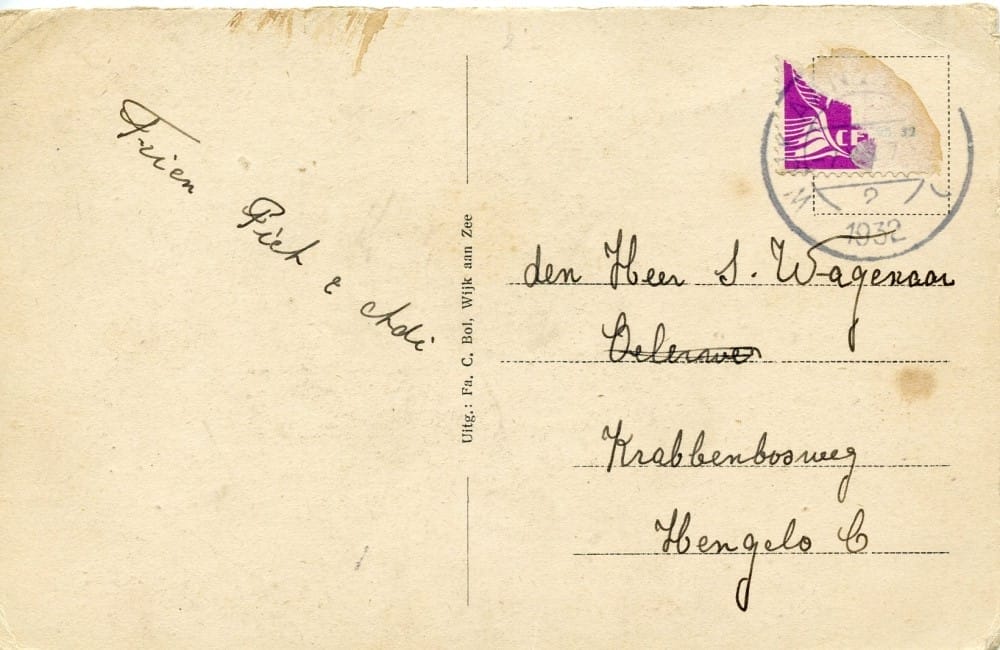 Frien Piet & Adi
Uitg.: Fa. C. Bol, Wijk aan Zee
CE
1932
den Heer S. Wagenaar
Krabbenbosweg
Hengelo O